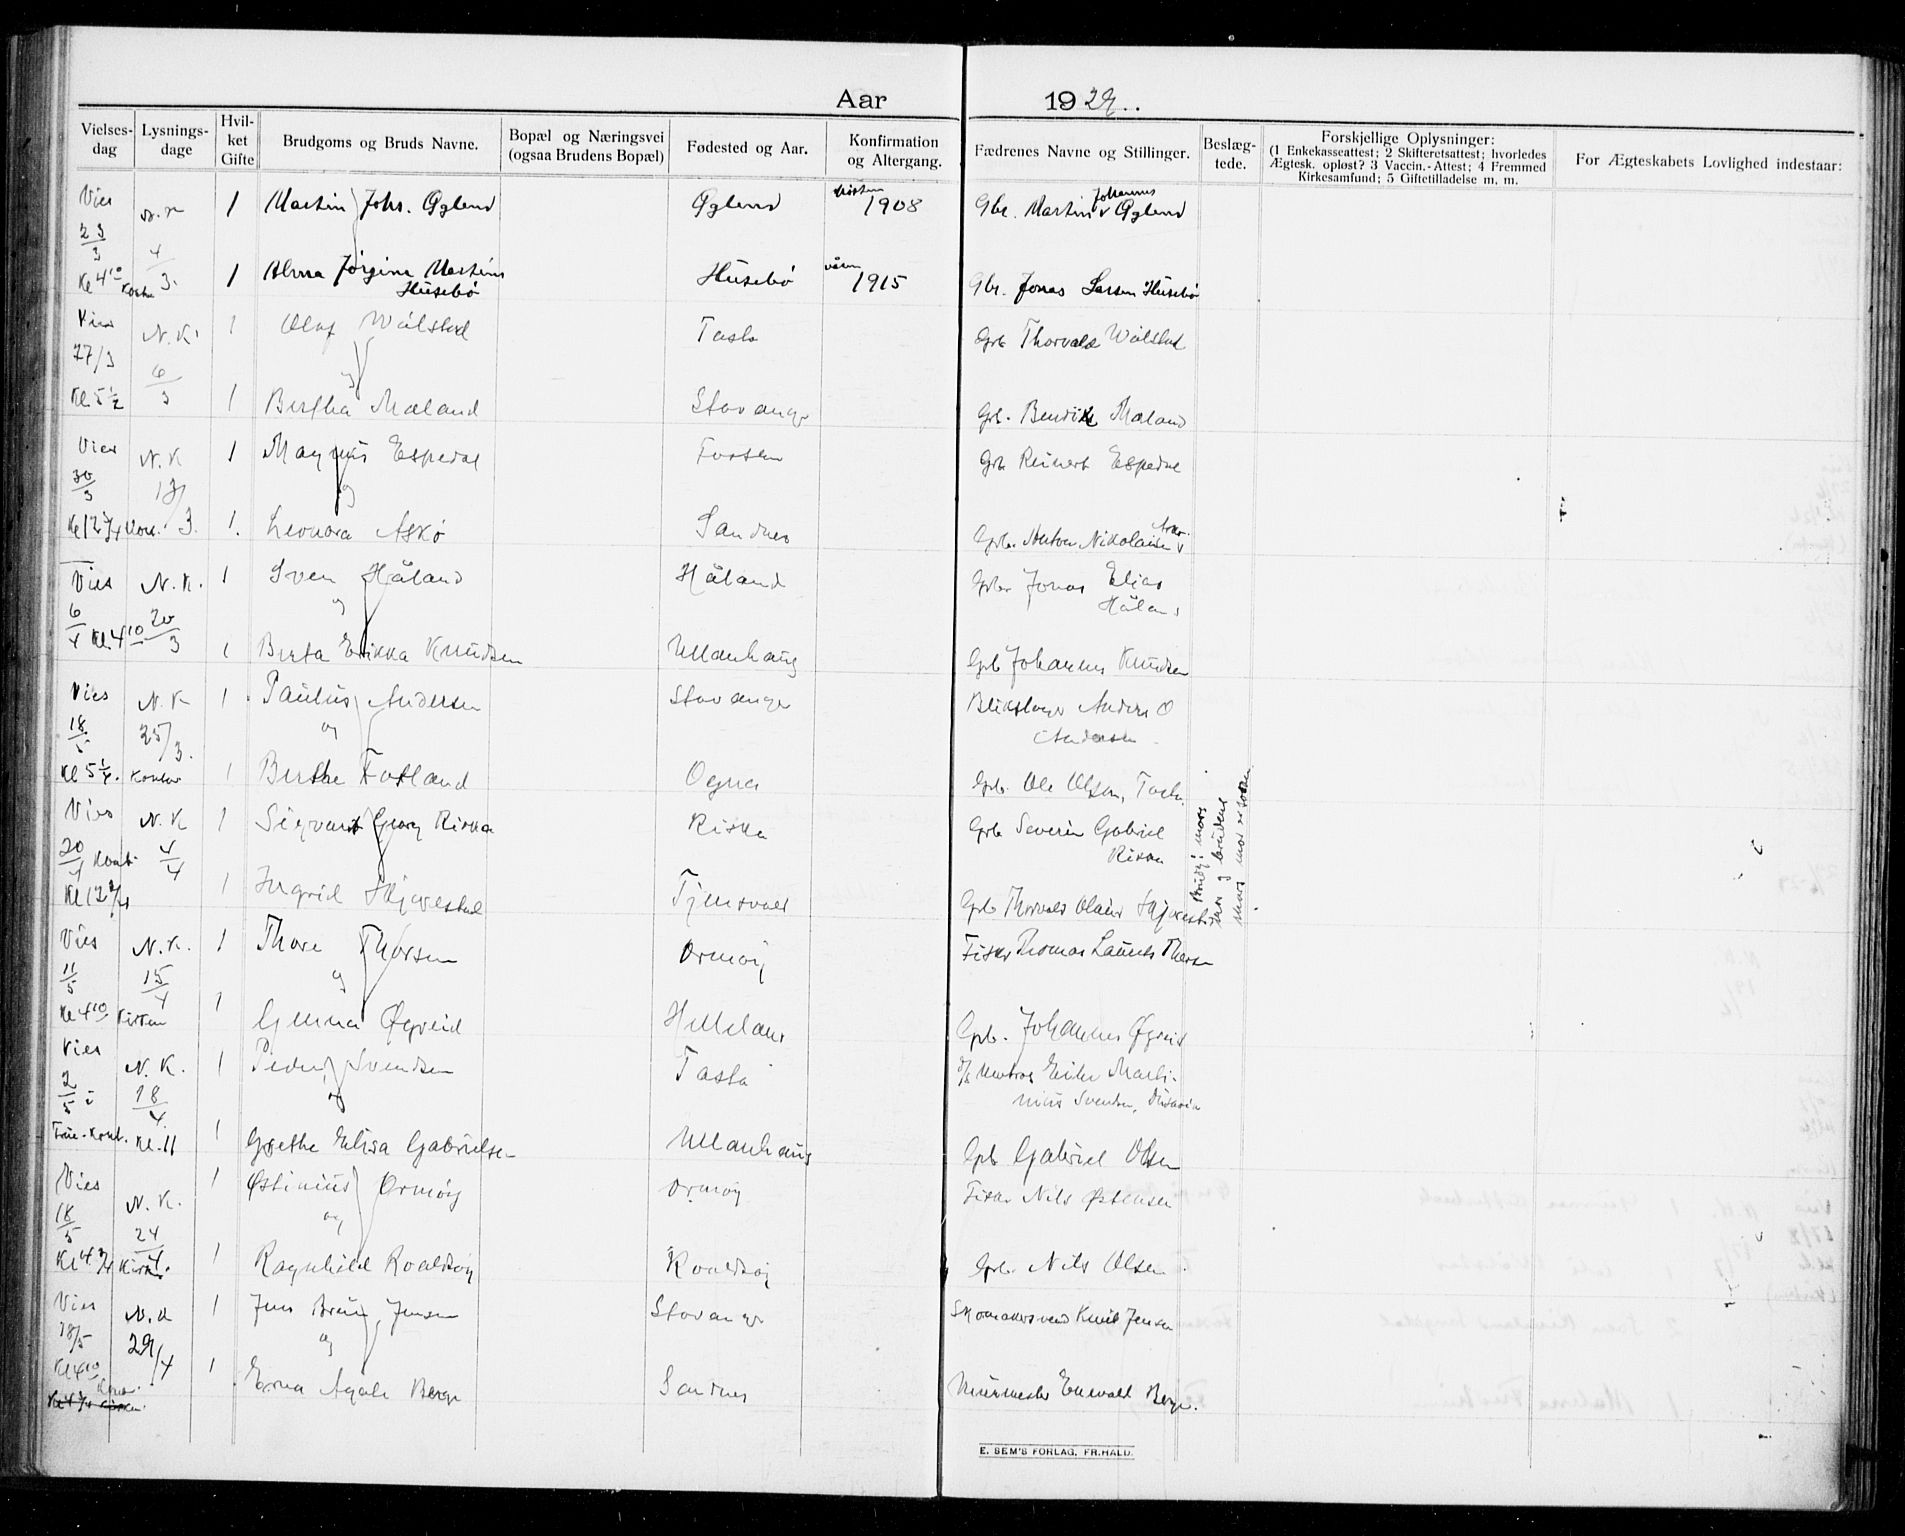 Aar 1929.
Vielses-dag
Lysnings-dage
Hvil-ket Gifte
Brudgoms og Bruds Navne.
Bopæl og Næringsvei (ogsaa Brudens Bopæl)
Fødested og Aar.
Konfirmation og Altergang.
Fædrenes Navne og Stillinger.
Beslæg-tede.
Forskjellige Oplysninger:
(1 Enkekasseattest; 2 Skifteretsattest; hvorledes
Ægtesk. opløst? 3 Vaccin.-Attest; 4 Fremmed
Kirkesamfund; 5 Giftetilladelse m. m.
For Ægteskabets Lovlighed indestaar:
Vies 1 Martin Johs. Øglend Øglend høsten 1908 Gbr. Martin Johannes Øglend
23/3 4/3
Kl 4 10 1 Jørgine Husebø Husebø våren 1915 Gbr. Jonas Larsen Husebø
Vies N.K. 1 Olaf Wålstad Tasta Grb Thorvald Wålstad
27/3 6/3 og
Kl 5 ½ 1 Bertha Mæland Stavanger Grb. Bendik Mæland
Vies N.K 1 Magnus Espedal Forsen Grb Reinert Espedal
30/3 og
3. 1. Leonora Askø Sandnes Grb. Anton Nikolaisen Askø
Vies N.K. 1 Sven Håland Håland Grb Jonas Elias Håland
6/4 Kl. 4 10 20/3 og
1 Berta Erikka Knudsen Ullanhaug Grb Johannes Knudsen
Vies N.K 1 Paulus Andersen Stavanger Blikslager Anders O Andersen
18/5 25/3. og
Kl 5 ¼. Kontor 1 Berthe Fotland Ogna Grb. Ole Olsen,
Vies N.K 1 Sigvart Georg Riska Riska Grb Severin Gabriel Riska
20/4 Kont. 4/4
Kl 12 ¾ 1 Ingrid Skjævestad Tjensvoll Grb Thorvald Olaus Skjævestad
Brudg: mors mor og brudens mors mor er søsken
Vies N.K. 1 Thore Thorsen Ormøy Fisker Thomas Laurits Thorsen
11/5 15/4 og
Kl 4 10 Kirken 1 Gunna Øgreid Helleland Grb. Johannes Øgreid
Vies N.K. 1 Peder Svendsen Tasta
2/5 18/4. og
Kont. Kl. 11 1 Grethe Elisa Gabrielsen Ullanhaug Grb Gabriel Olsen
Vies N.K. 1 Østinius Ormøy Ormøy Fisker Nils Østensen
18/5 24/4 og
Kl 4 ¾ Kirken. 1 Ragnhild Roaldsøy Roaldsøy Grb. Nils Olsen
Vies N.K 1 Jens Jensen Stavanger Skomakersvend Emil Jensen
18/5 29/4 og
Kl 4 10 1 Erna Agate Berge Sandnes Murmester Enevald Berge.
E. SEM'S FORLAG, FR.HALD.